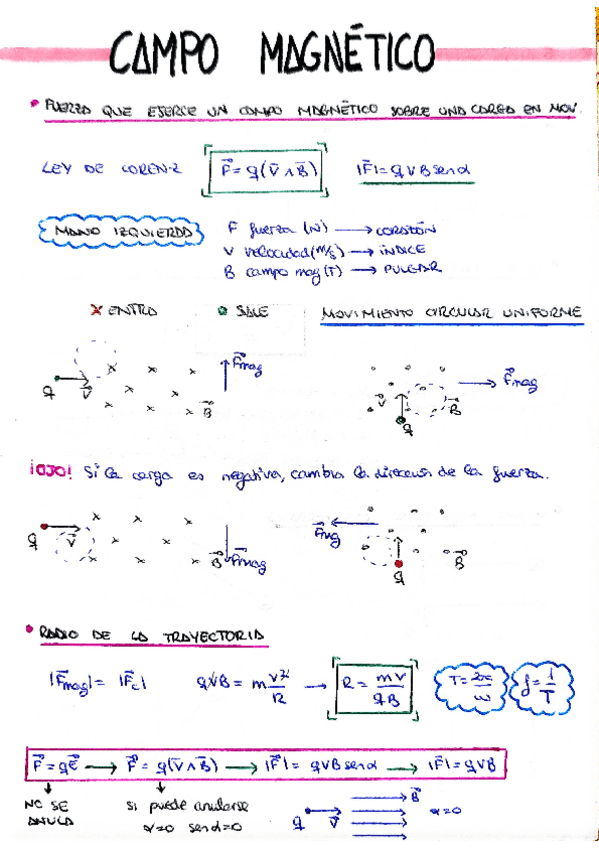 CAMPO MAGNÉTICO
• FUERZA QUE EJERCE UN CAMPO MAGNÉTICO SOBRE UNA CARGA EN MOV.
LEY DE LOREN-Z F⃗ = q(v⃗ ∧ B⃗) |F⃗| = q v B senα
MANO IZQUIERDA
F fuerza (N) → CORAZÓN
V velocidad (m/s) → ÍNDICE
B campo mag (T) → PULGAR
x ENTRA • SALE MOVIMIENTO CIRCULAR UNIFORME
q v⃗ B⃗ F⃗mag
q v⃗ B⃗ F⃗mag
¡OJO! Si la carga es negativa, cambia la dirección de la fuerza.
q v⃗ B⃗ F⃗mag
F⃗mg q B⃗
• RADIO DE LA TRAYECTORIA
|F⃗mag| = |F⃗c| qvB = m v²/R → R = mv/qB T = 2π/ω f = 1/T
F⃗ = qE⃗ → F⃗ = q(v⃗ ∧ B⃗) → |F⃗| = qvB senα → |F⃗| = qvB
NO SE ANULA
si puede anularse
α=0 senα=0
q v⃗ B⃗ α=0